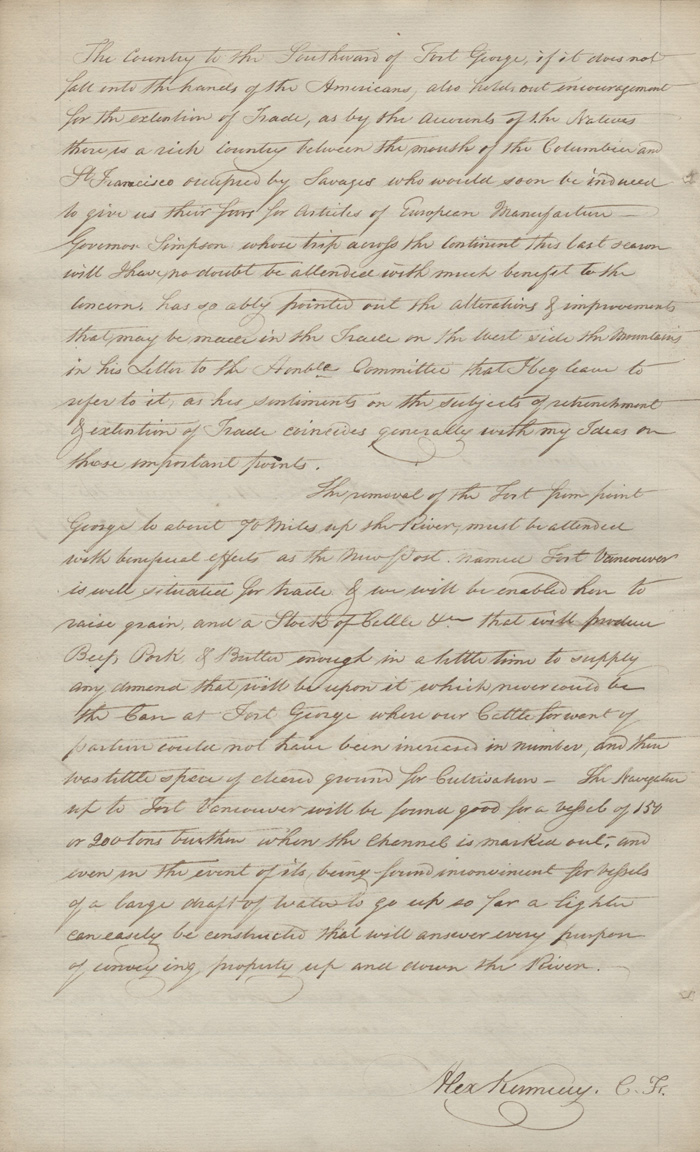 The Country to the Southward of Fort George, if it does not
fall into the hands of the Americans, also holds out encouragement
for the extention of Trade, as by the Accounts of the Natives
there is a rich Country between the mouth of the Columbia and
St. Francisco occupied by Savages who would soon be induced
to give us their furs for Articles of European Manufacture —
Governor Simpson whose trip across the Continent this last season
will I have no doubt be attended with much benefit to the
Concern, has so ably pointed out the alterations & improvements
that may be made in the Trade on the West side the Mountains
in his Letter to the Honble Committee that I beg leave to
refer to it, as his sentiments on the subjects of retrenchment
& extention of Trade coinsides generally with my Ideas on
those important points.
The removal of the Fort from point
George to about 70 Miles up the River, must be attended
with benificial effects as the New Post named Fort Vancouver
is well situated for trade & we will be enabled here to
raise grain, and a Stock of Cattle &c that will produce
Beef, Pork & Butter enough in a little time to supply
any demand that will be upon it which never could be
the Case at Fort George where our Cattle for want of
pasture could not have been increased in number, and there
was little space of cleared ground for Cultivation — The Navigation
up to Fort Vancouver will be found good for a vessel of 150
or 200 tons burthen when the Channel is marked out, and
even in the event of its being found inconvenient for vessels
of a large draft of water to go up so far a lighter
can easily be constructed that will answer every purpose
of conveying property up and down the River.
Alex Kennedy. C. Fr.